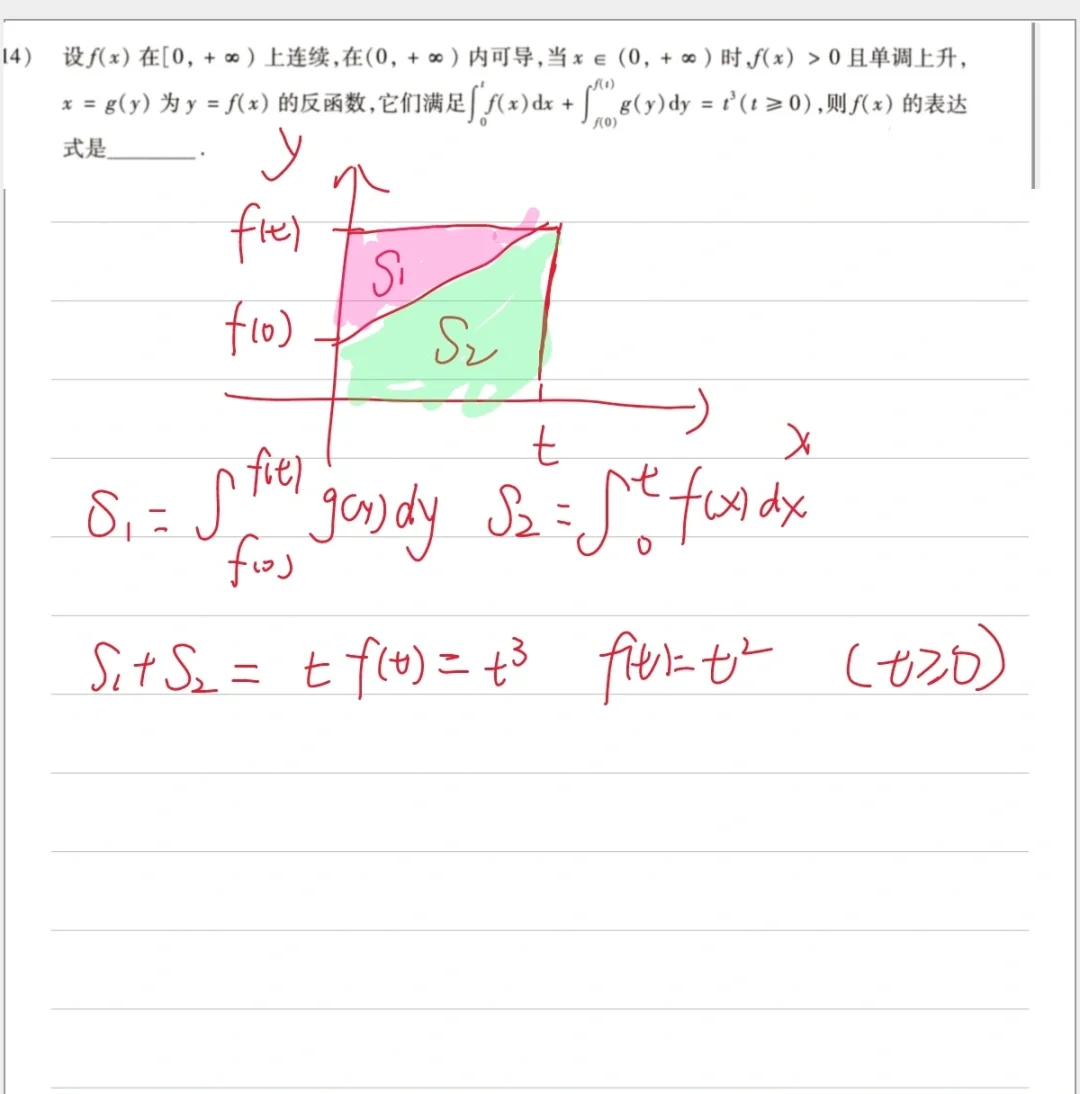 14) 设f(x) 在[0, + ∞) 上连续,在(0, + ∞) 内可导,当 x ∈ (0, + ∞) 时,f(x) > 0 且单调上升,
x = g(y) 为 y = f(x) 的反函数,它们满足∫₀ᵗ f(x)dx + ∫_{f(0)}^{f(t)} g(y)dy = t³(t ≥ 0),则f(x) 的表达
式是________.
y
f(t)
S₁
f(0)
S₂
t
x
S₁ = ∫_{f(0)}^{f(t)} g(y)dy S₂ = ∫₀ᵗ f(x)dx
S₁+S₂ = t f(t) = t³ f(t)= t² (t≥0)